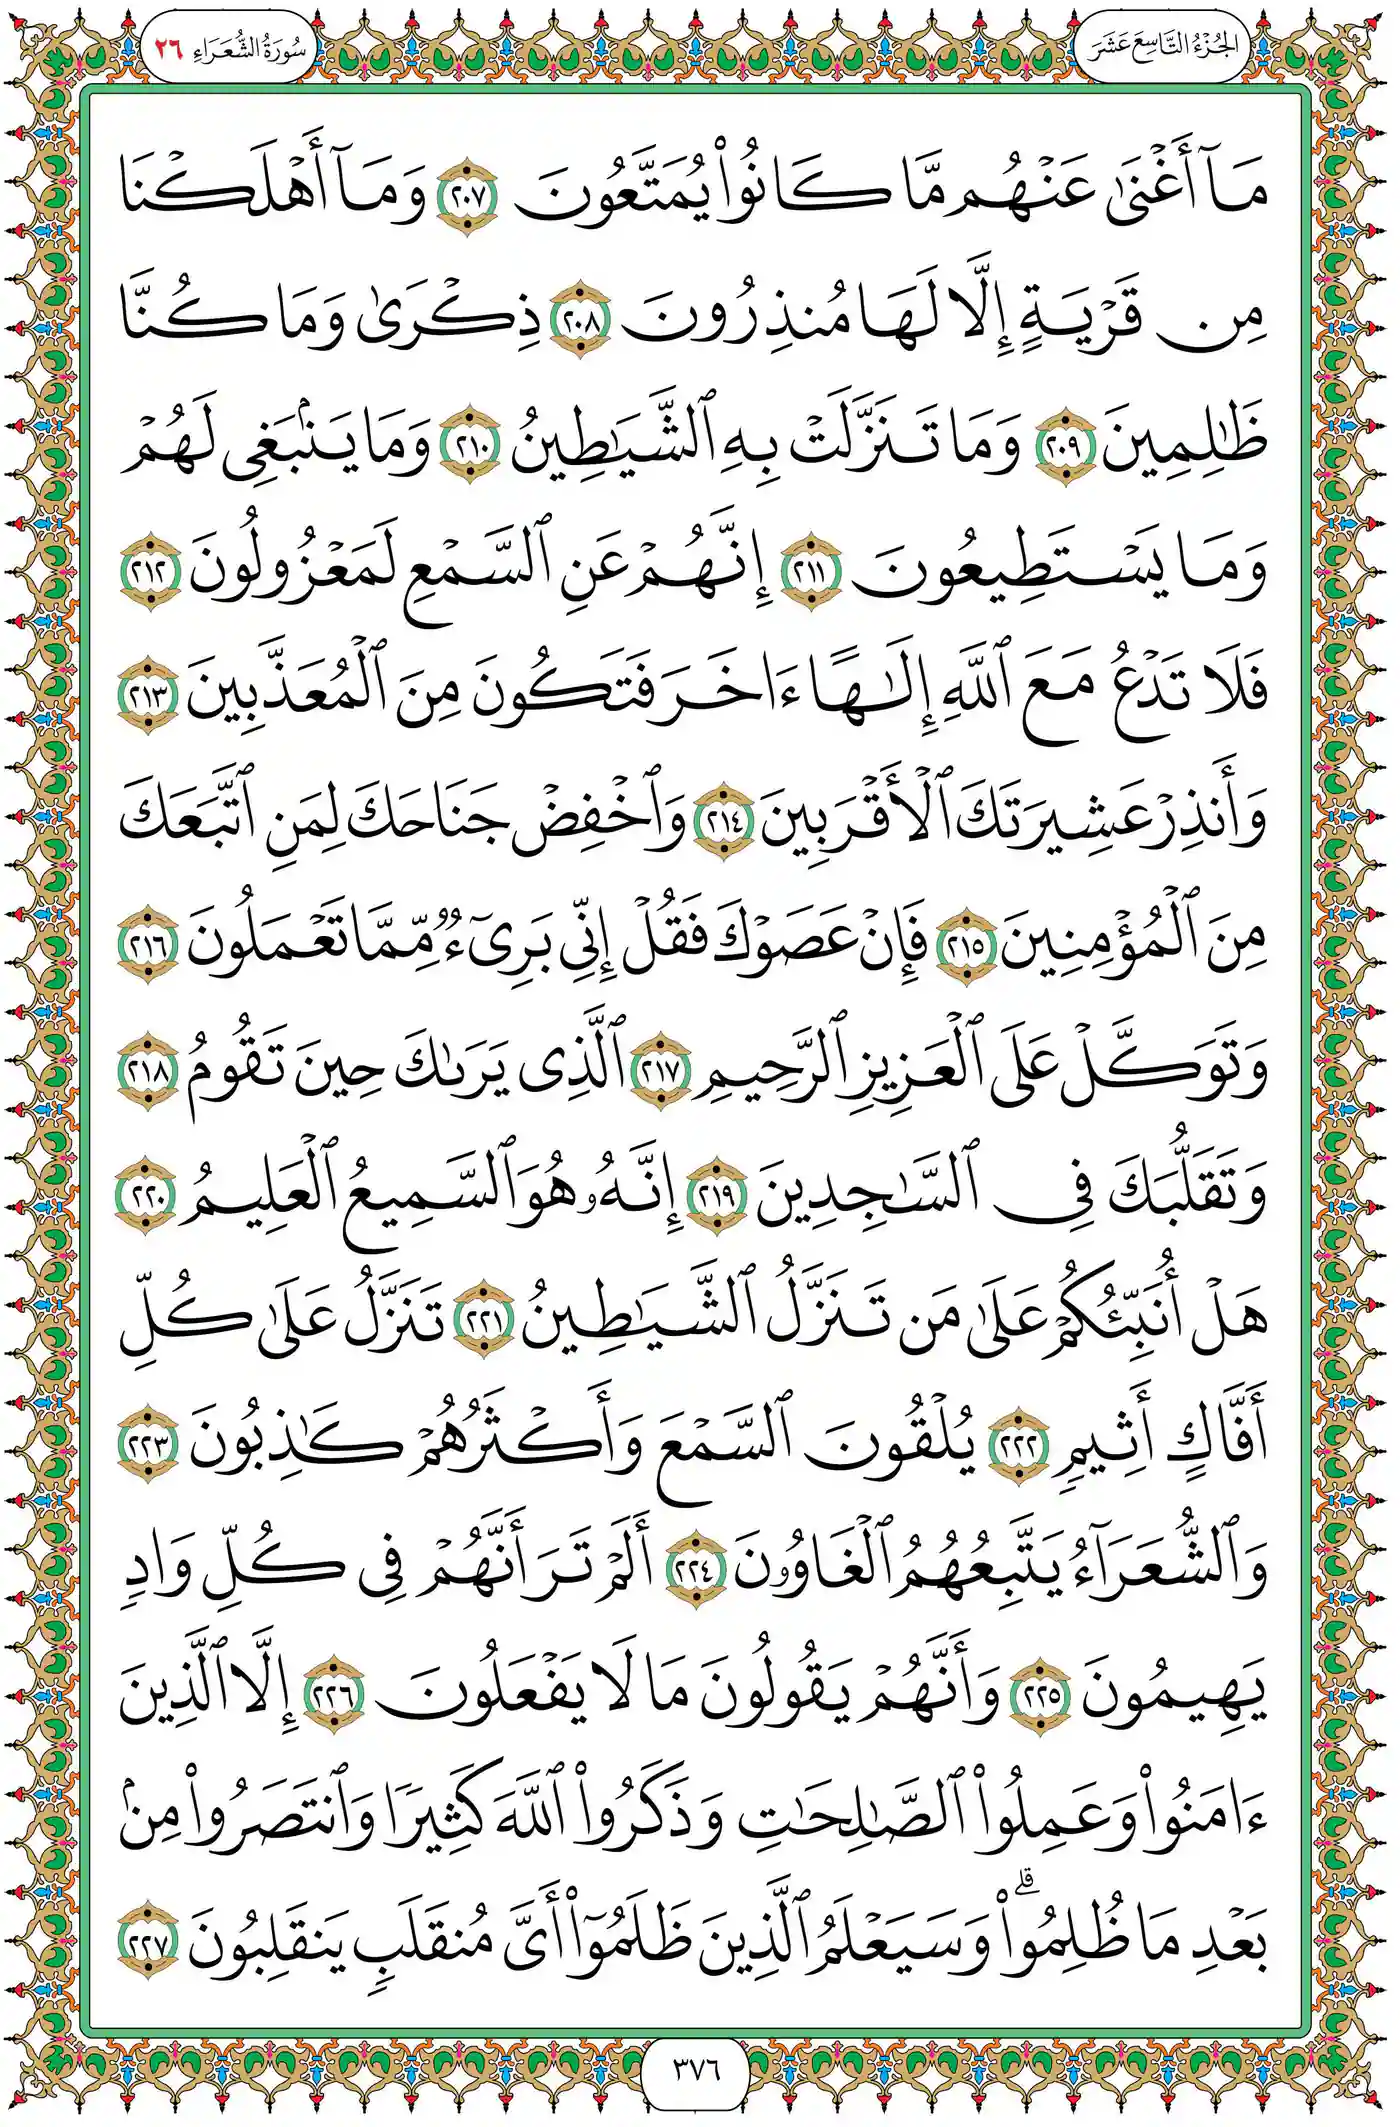 الجُزْءُ التَّاسِعَ عَشَرَ
سُورَةُ الشُّعَرَاءِ ٢٦
مَآ أَغْنَىٰ عَنْهُم مَّا كَانُوا۟ يُمَتَّعُونَ ٢٠٧ وَمَآ أَهْلَكْنَا
مِن قَرْيَةٍ إِلَّا لَهَا مُنذِرُونَ ٢٠٨ ذِكْرَىٰ وَمَا كُنَّا
ظَٰلِمِينَ ٢٠٩ وَمَا تَنَزَّلَتْ بِهِ ٱلشَّيَٰطِينُ ٢١٠ وَمَا يَنۢبَغِى لَهُمْ
وَمَا يَسْتَطِيعُونَ ٢١١ إِنَّهُمْ عَنِ ٱلسَّمْعِ لَمَعْزُولُونَ ٢١٢
فَلَا تَدْعُ مَعَ ٱللَّهِ إِلَٰهًا ءَاخَرَ فَتَكُونَ مِنَ ٱلْمُعَذَّبِينَ ٢١٣
وَأَنذِرْ عَشِيرَتَكَ ٱلْأَقْرَبِينَ ٢١٤ وَٱخْفِضْ جَنَاحَكَ لِمَنِ ٱتَّبَعَكَ
مِنَ ٱلْمُؤْمِنِينَ ٢١٥ فَإِنْ عَصَوْكَ فَقُلْ إِنِّى بَرِىٓءٌ مِّمَّا تَعْمَلُونَ ٢١٦
وَتَوَكَّلْ عَلَى ٱلْعَزِيزِ ٱلرَّحِيمِ ٢١٧ ٱلَّذِى يَرَىٰكَ حِينَ تَقُومُ ٢١٨
وَتَقَلُّبَكَ فِى ٱلسَّٰجِدِينَ ٢١٩ إِنَّهُۥ هُوَ ٱلسَّمِيعُ ٱلْعَلِيمُ ٢٢٠
هَلْ أُنَبِّئُكُمْ عَلَىٰ مَن تَنَزَّلُ ٱلشَّيَٰطِينُ ٢٢١ تَنَزَّلُ عَلَىٰ كُلِّ
أَفَّاكٍ أَثِيمٍ ٢٢٢ يُلْقُونَ ٱلسَّمْعَ وَأَكْثَرُهُمْ كَٰذِبُونَ ٢٢٣
وَٱلشُّعَرَآءُ يَتَّبِعُهُمُ ٱلْغَاوُۥنَ ٢٢٤ أَلَمْ تَرَ أَنَّهُمْ فِى كُلِّ وَادٍ
يَهِيمُونَ ٢٢٥ وَأَنَّهُمْ يَقُولُونَ مَا لَا يَفْعَلُونَ ٢٢٦ إِلَّا ٱلَّذِينَ
ءَامَنُوا۟ وَعَمِلُوا۟ ٱلصَّٰلِحَٰتِ وَذَكَرُوا۟ ٱللَّهَ كَثِيرًا وَٱنتَصَرُوا۟ مِنۢ
بَعْدِ مَا ظُلِمُوا۟ ۗ وَسَيَعْلَمُ ٱلَّذِينَ ظَلَمُوٓا۟ أَىَّ مُنقَلَبٍ يَنقَلِبُونَ ٢٢٧
٣٧٦